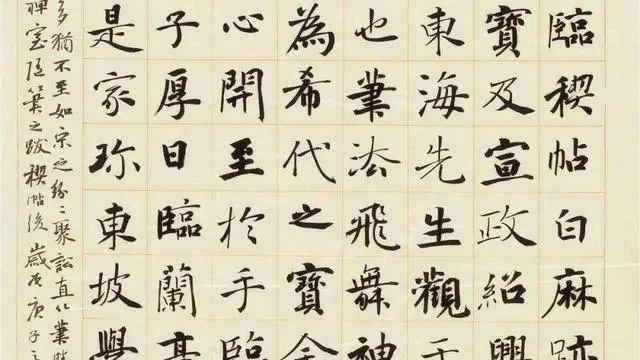 臨稧帖白麻跡
寶及宣政紹興
東海先生觀于
也筆法飛舞神
為希代之寶
心開至於手臨
子厚日臨蘭亭
是家珎東坡
多猶不至如宋之紛〻聚訟直以
禪室随筆之跋稧帖後歲次庚子